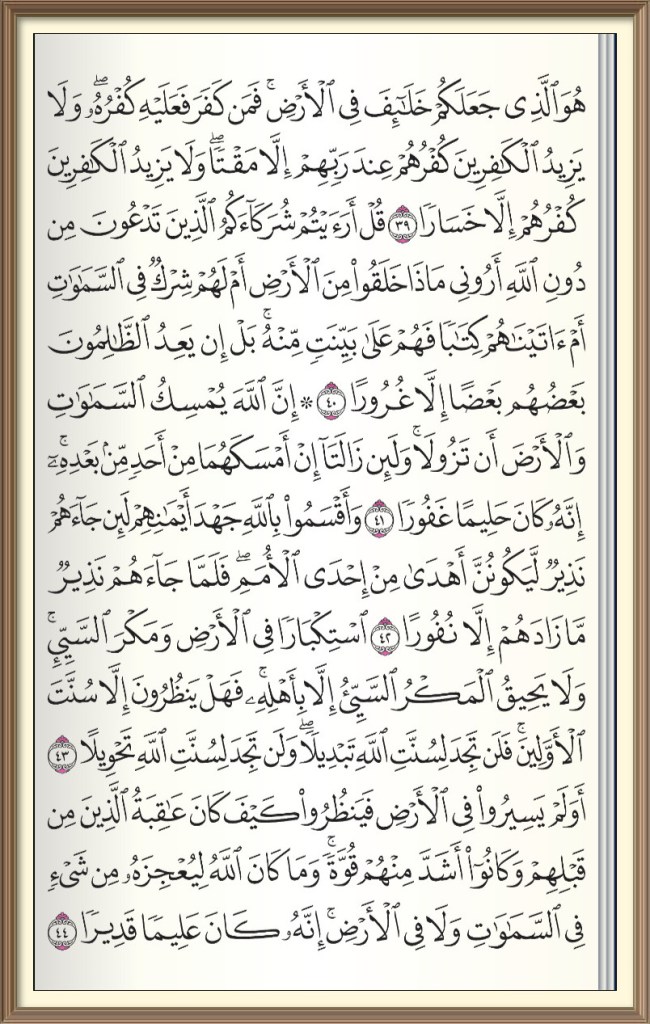 هُوَ ٱلَّذِى جَعَلَكُمْ خَلَٰٓئِفَ فِى ٱلْأَرْضِ ۚ فَمَن كَفَرَ فَعَلَيْهِ كُفْرُهُۥ ۖ وَلَا
يَزِيدُ ٱلْكَٰفِرِينَ كُفْرُهُمْ عِندَ رَبِّهِمْ إِلَّا مَقْتًا ۖ وَلَا يَزِيدُ ٱلْكَٰفِرِينَ
كُفْرُهُمْ إِلَّا خَسَارًا ٣٩ قُلْ أَرَءَيْتُمْ شُرَكَآءَكُمُ ٱلَّذِينَ تَدْعُونَ مِن
دُونِ ٱللَّهِ أَرُونِى مَاذَا خَلَقُوا۟ مِنَ ٱلْأَرْضِ أَمْ لَهُمْ شِرْكٌ فِى ٱلسَّمَٰوَٰتِ
أَمْ ءَاتَيْنَٰهُمْ كِتَٰبًا فَهُمْ عَلَىٰ بَيِّنَتٍ مِّنْهُ ۚ بَلْ إِن يَعِدُ ٱلظَّٰلِمُونَ
بَعْضُهُم بَعْضًا إِلَّا غُرُورًا ٤٠ ۞ إِنَّ ٱللَّهَ يُمْسِكُ ٱلسَّمَٰوَٰتِ
وَٱلْأَرْضَ أَن تَزُولَا ۚ وَلَئِن زَالَتَآ إِنْ أَمْسَكَهُمَا مِنْ أَحَدٍ مِّنۢ بَعْدِهِۦٓ ۚ
إِنَّهُۥ كَانَ حَلِيمًا غَفُورًا ٤١ وَأَقْسَمُوا۟ بِٱللَّهِ جَهْدَ أَيْمَٰنِهِمْ لَئِن جَآءَهُمْ
نَذِيرٌ لَّيَكُونُنَّ أَهْدَىٰ مِنْ إِحْدَى ٱلْأُمَمِ ۖ فَلَمَّا جَآءَهُمْ نَذِيرٌ
مَّا زَادَهُمْ إِلَّا نُفُورًا ٤٢ ٱسْتِكْبَارًا فِى ٱلْأَرْضِ وَمَكْرَ ٱلسَّيِّئِ ۚ
وَلَا يَحِيقُ ٱلْمَكْرُ ٱلسَّيِّئُ إِلَّا بِأَهْلِهِۦ ۚ فَهَلْ يَنظُرُونَ إِلَّا سُنَّتَ
ٱلْأَوَّلِينَ ۚ فَلَن تَجِدَ لِسُنَّتِ ٱللَّهِ تَبْدِيلًا ۖ وَلَن تَجِدَ لِسُنَّتِ ٱللَّهِ تَحْوِيلًا ٤٣
أَوَلَمْ يَسِيرُوا۟ فِى ٱلْأَرْضِ فَيَنظُرُوا۟ كَيْفَ كَانَ عَٰقِبَةُ ٱلَّذِينَ مِن
قَبْلِهِمْ وَكَانُوٓا۟ أَشَدَّ مِنْهُمْ قُوَّةً ۚ وَمَا كَانَ ٱللَّهُ لِيُعْجِزَهُۥ مِن شَىْءٍ
فِى ٱلسَّمَٰوَٰتِ وَلَا فِى ٱلْأَرْضِ ۚ إِنَّهُۥ كَانَ عَلِيمًا قَدِيرًا ٤٤